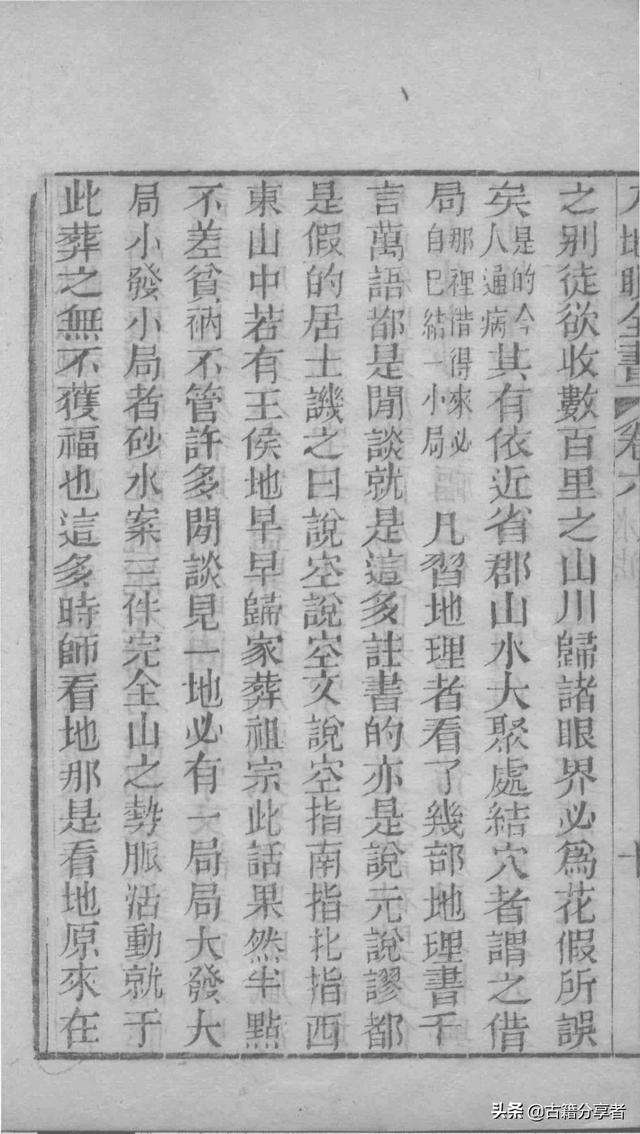 地眼全書 卷六
之别徒欲收數百里之山川歸諸眼界必為花假所誤
矣是的今人通病其有依近省郡山水大聚處結穴者謂之借
局那裡借得來必自巳結一小局 凡習地理者看了幾部地理書千
言萬語都是閒談就是這多註書的亦是說元說謬都
是假的居士譏之曰說空說空文說空指南指北指西
東山中若有王侯地早早歸家葬祖宗此話果然半點
不差貧衲不管許多閒談見一地必有一局局大發大
局小發小局者砂水案三件完全山之勢脈活動就于
此葬之無不獲福也這多時師看地那是看地原來在
头条 @古籍分享者